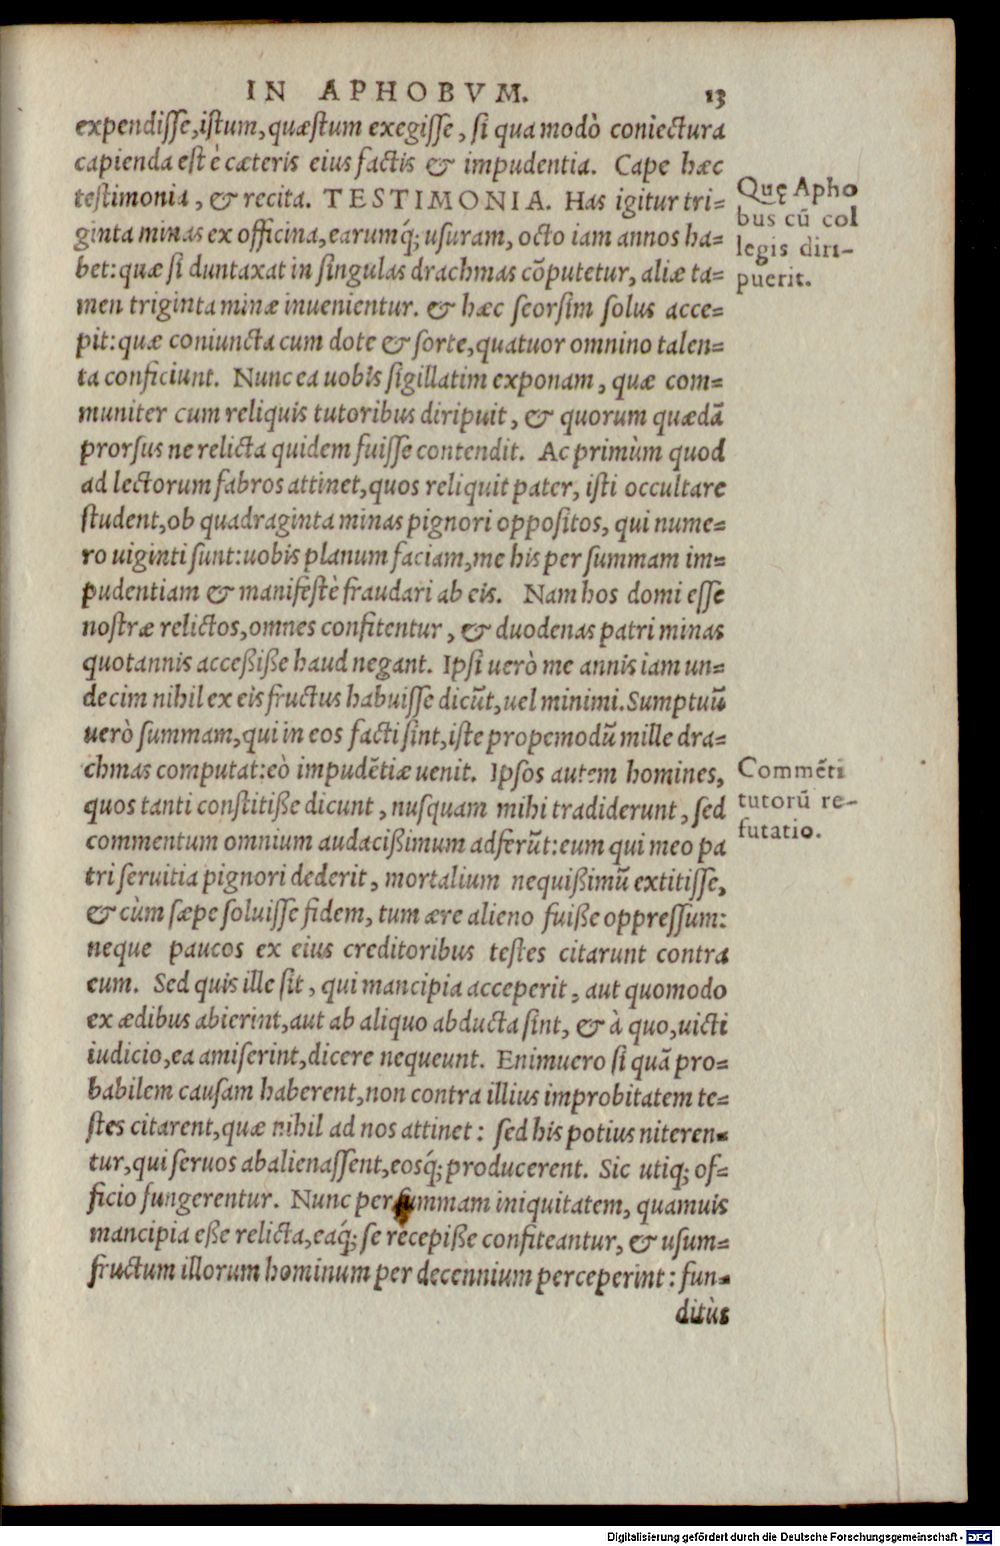 IN APHOBVM. 13
expendisse, istum, quæstum exegisse, si qua modò coniectura
capienda est è cæteris eius factis & impudentia. Cape hæc
testimonia, & recita. TESTIMONIA. Has igitur tri=
ginta minas ex officina, earumq́; usuram, octo iam annos ha=
bet: quæ si duntaxat in singulas drachmas cõputetur, aliæ ta=
men triginta minæ inuenientur. & hæc seorsim solus acce=
pit: quæ coniuncta cum dote & sorte, quatuor omnino talen=
ta conficiunt. Nunc ea uobis sigillatim exponam, quæ com=
muniter cum reliquis tutoribus diripuit, & quorum quædã
prorsus ne relicta quidem fuisse contendit. Ac primùm quod
ad lectorum fabros attinet, quos reliquit pater, isti occultare
student, ob quadraginta minas pignori oppositos, qui nume=
ro uiginti sunt: uobis planum faciam, me his per summam im=
pudentiam & manifestè fraudari ab eis. Nam hos domi esse
nostræ relictos, omnes confitentur, & duodenas patri minas
quotannis acceßiße haud negant. Ipsi uerò me annis iam un=
decim nihil ex eis fructus habuisse dicũt, uel minimi. Sumptuũ
uerò summam, qui in eos facti sint, iste propemodũ mille dra=
chmas computat: eò impudẽtiæ uenit. Ipsos autem homines,
quos tanti constitiße dicunt, nusquam mihi tradiderunt, sed
commentum omnium audacißimum adferũt: eum qui meo pa
tri seruitia pignori dederit, mortalium nequißimũ extitisse,
& cùm sæpe soluisse fidem, tum ære alieno fuiße oppressum:
neque paucos ex eius creditoribus testes citarunt contra
eum. Sed quis ille sit, qui mancipia acceperit, aut quomodo
ex ædibus abierint, aut ab aliquo abducta sint, & à quo, uicti
iudicio, ea amiserint, dicere nequeunt. Enimuero si quã pro=
babilem causam haberent, non contra illius improbitatem te=
stes citarent, quæ nihil ad nos attinet: sed his potius niteren=
tur, qui seruos abalienassent, eosq́; producerent. Sic utiq; of=
ficio fungerentur. Nunc per summam iniquitatem, quamuis
mancipia eße relicta, eaq́; se recepiße confiteantur, & usum=
fructum illorum hominum per decennium perceperint: fun=
ditùs
Quę Apho
bus cũ col
legis diri-
puerit.
Commẽti
tutorũ re-
futatio.
Digitalisierung gefördert durch die Deutsche Forschungsgemeinschaft - DFG